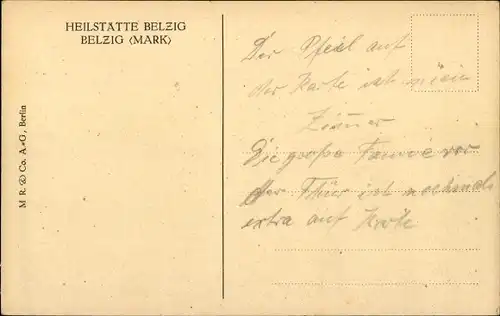 HEILSTÄTTE BELZIG
BELZIG (MARK)
M R & Co. A.-G., Berlin
Der Pfeil auf
der Karte ist mein
Zimmer
Die große Tanne vor
der Thür ist nochmals
extra auf Karte